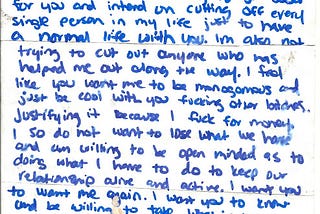 for you and intend on cutting off every
single person in my life just to have
a normal life with you. Im also not
trying to cut out anyone who has
helped me out along the way. I feel
like you want me to be monogamous and
just be cool with you fucking other bitches.
Justifying it because I fuck for money.
I so do not want to lose what we have
and am willing to be open minded as to
doing what I have to do to keep our
relationship alive and active. I want you
to want me again. I want you to know
and be willing to take